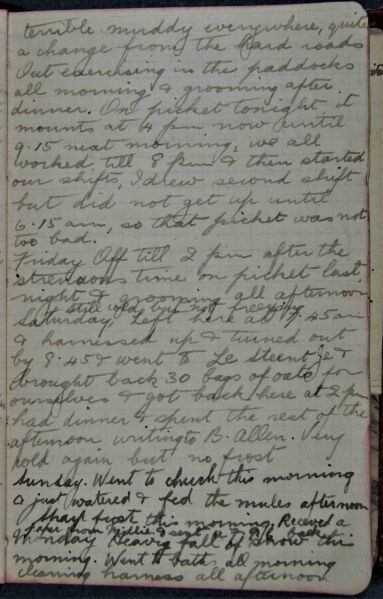 terrible muddy everywhere, quite
a change from the hard roads
Out exercising in the paddocks
all morning & grooming after
dinner. On picket tonight it
mounts at 4 pm now until
9.15 next morning, we all
worked till 8 pm & then started
our shifts, I drew second shift
but did not get up until
6.15 am, so that picket was not
too bad.
Friday Off till 2 pm after the
strenuous time on picket last
night & grooming all afternoon
still cold but not freezing
Saturday Left here at 7.45am
& harnessed up & turned out
by 8.45 & went to Le Steent Je &
brought back 30 bags of oats for
ourselves & got back here at 2 pm
had dinner & spent the rest of the
afternoon writing to B. Allen. Very
cold again but no frost
Sunday. Went to church this morning
& just watered & fed the mules afternoon
Sharp frost this morning, Received a
paper from Nellie & sent back
Monday Heavy fall of snow this
morning. Went to baths all morning
cleaning harness all afternoon